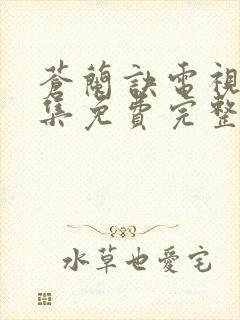 蒼蘭訣電視
集免費完整
水草也愛宅